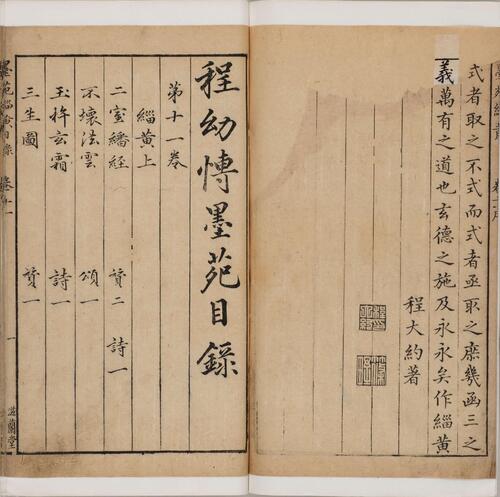 式者取之不式而式者亟取之庶幾函三之
義萬有之道也玄德之施及永永矣作緇黃
程大約著
程幼博墨苑目錄
第十一卷
緇黃上
二室繙經 贊二 詩一
不壞法雲 頌一
玉杵玄霜 詩一
三生圖 贊一
一 滋蘭堂